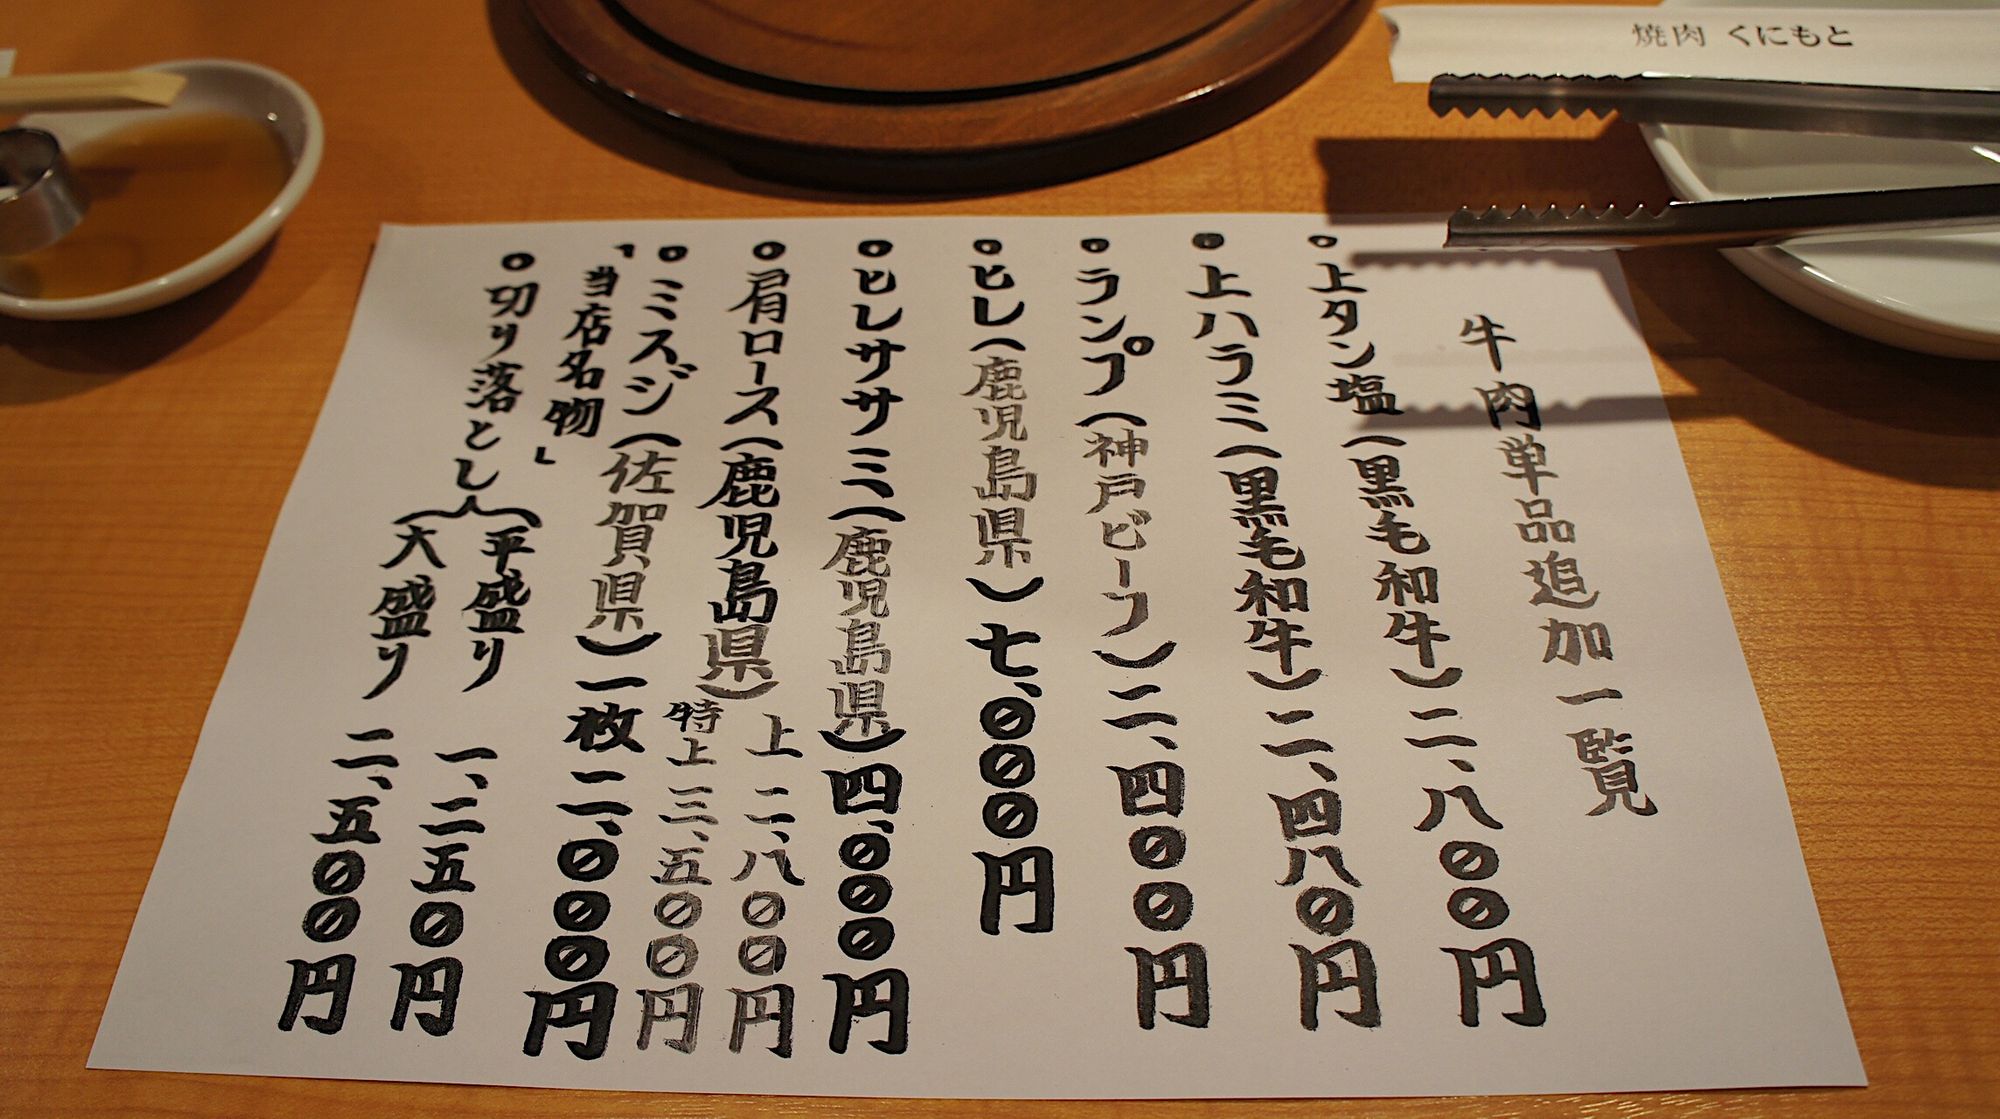 焼肉 くにもと
牛肉単品追加一覧
上タン塩(黒毛和牛)二、八〇〇円
上ハラミ(黒毛和牛)二、四八〇円
ランプ(神戸ビーフ)二、四〇〇円
ヒレ(鹿児島県)七、〇〇〇円
ヒレササミ(鹿児島県)四、〇〇〇円
肩ロース(鹿児島県)
上 二、八〇〇円
特上 三、五〇〇円
ミスジ(佐賀県)一枚二、〇〇〇円
「当店名物」
切り落とし
平盛り 一、二五〇円
大盛り 二、五〇〇円